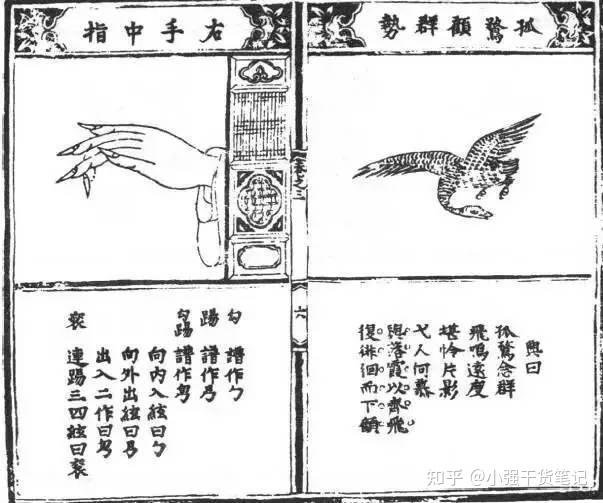 孤鶩顧群勢
興曰
孤鶩念群
飛鳴遠度
堪怜片影
弋人何慕
與落霞以齊飛
復徘徊而下顧
卷之三
六
右手中指
勾 譜作勹
踢 譜作
勾踢 譜作
向內入絃曰勹
向外出絃曰
出入二作曰
連踢三四絃曰
知乎 @小强干货笔记